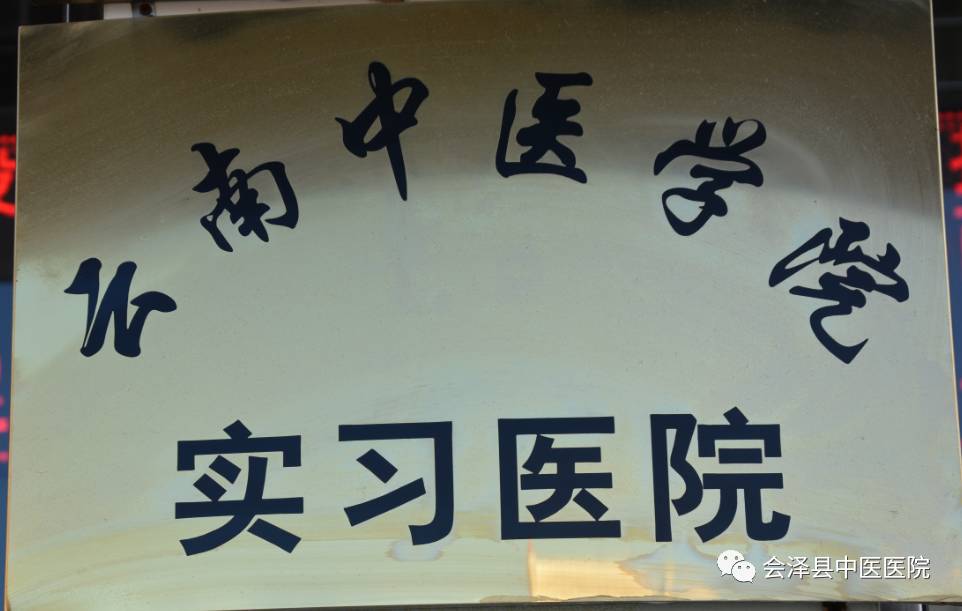 云南中医学院
实习医院
会泽县中医医院